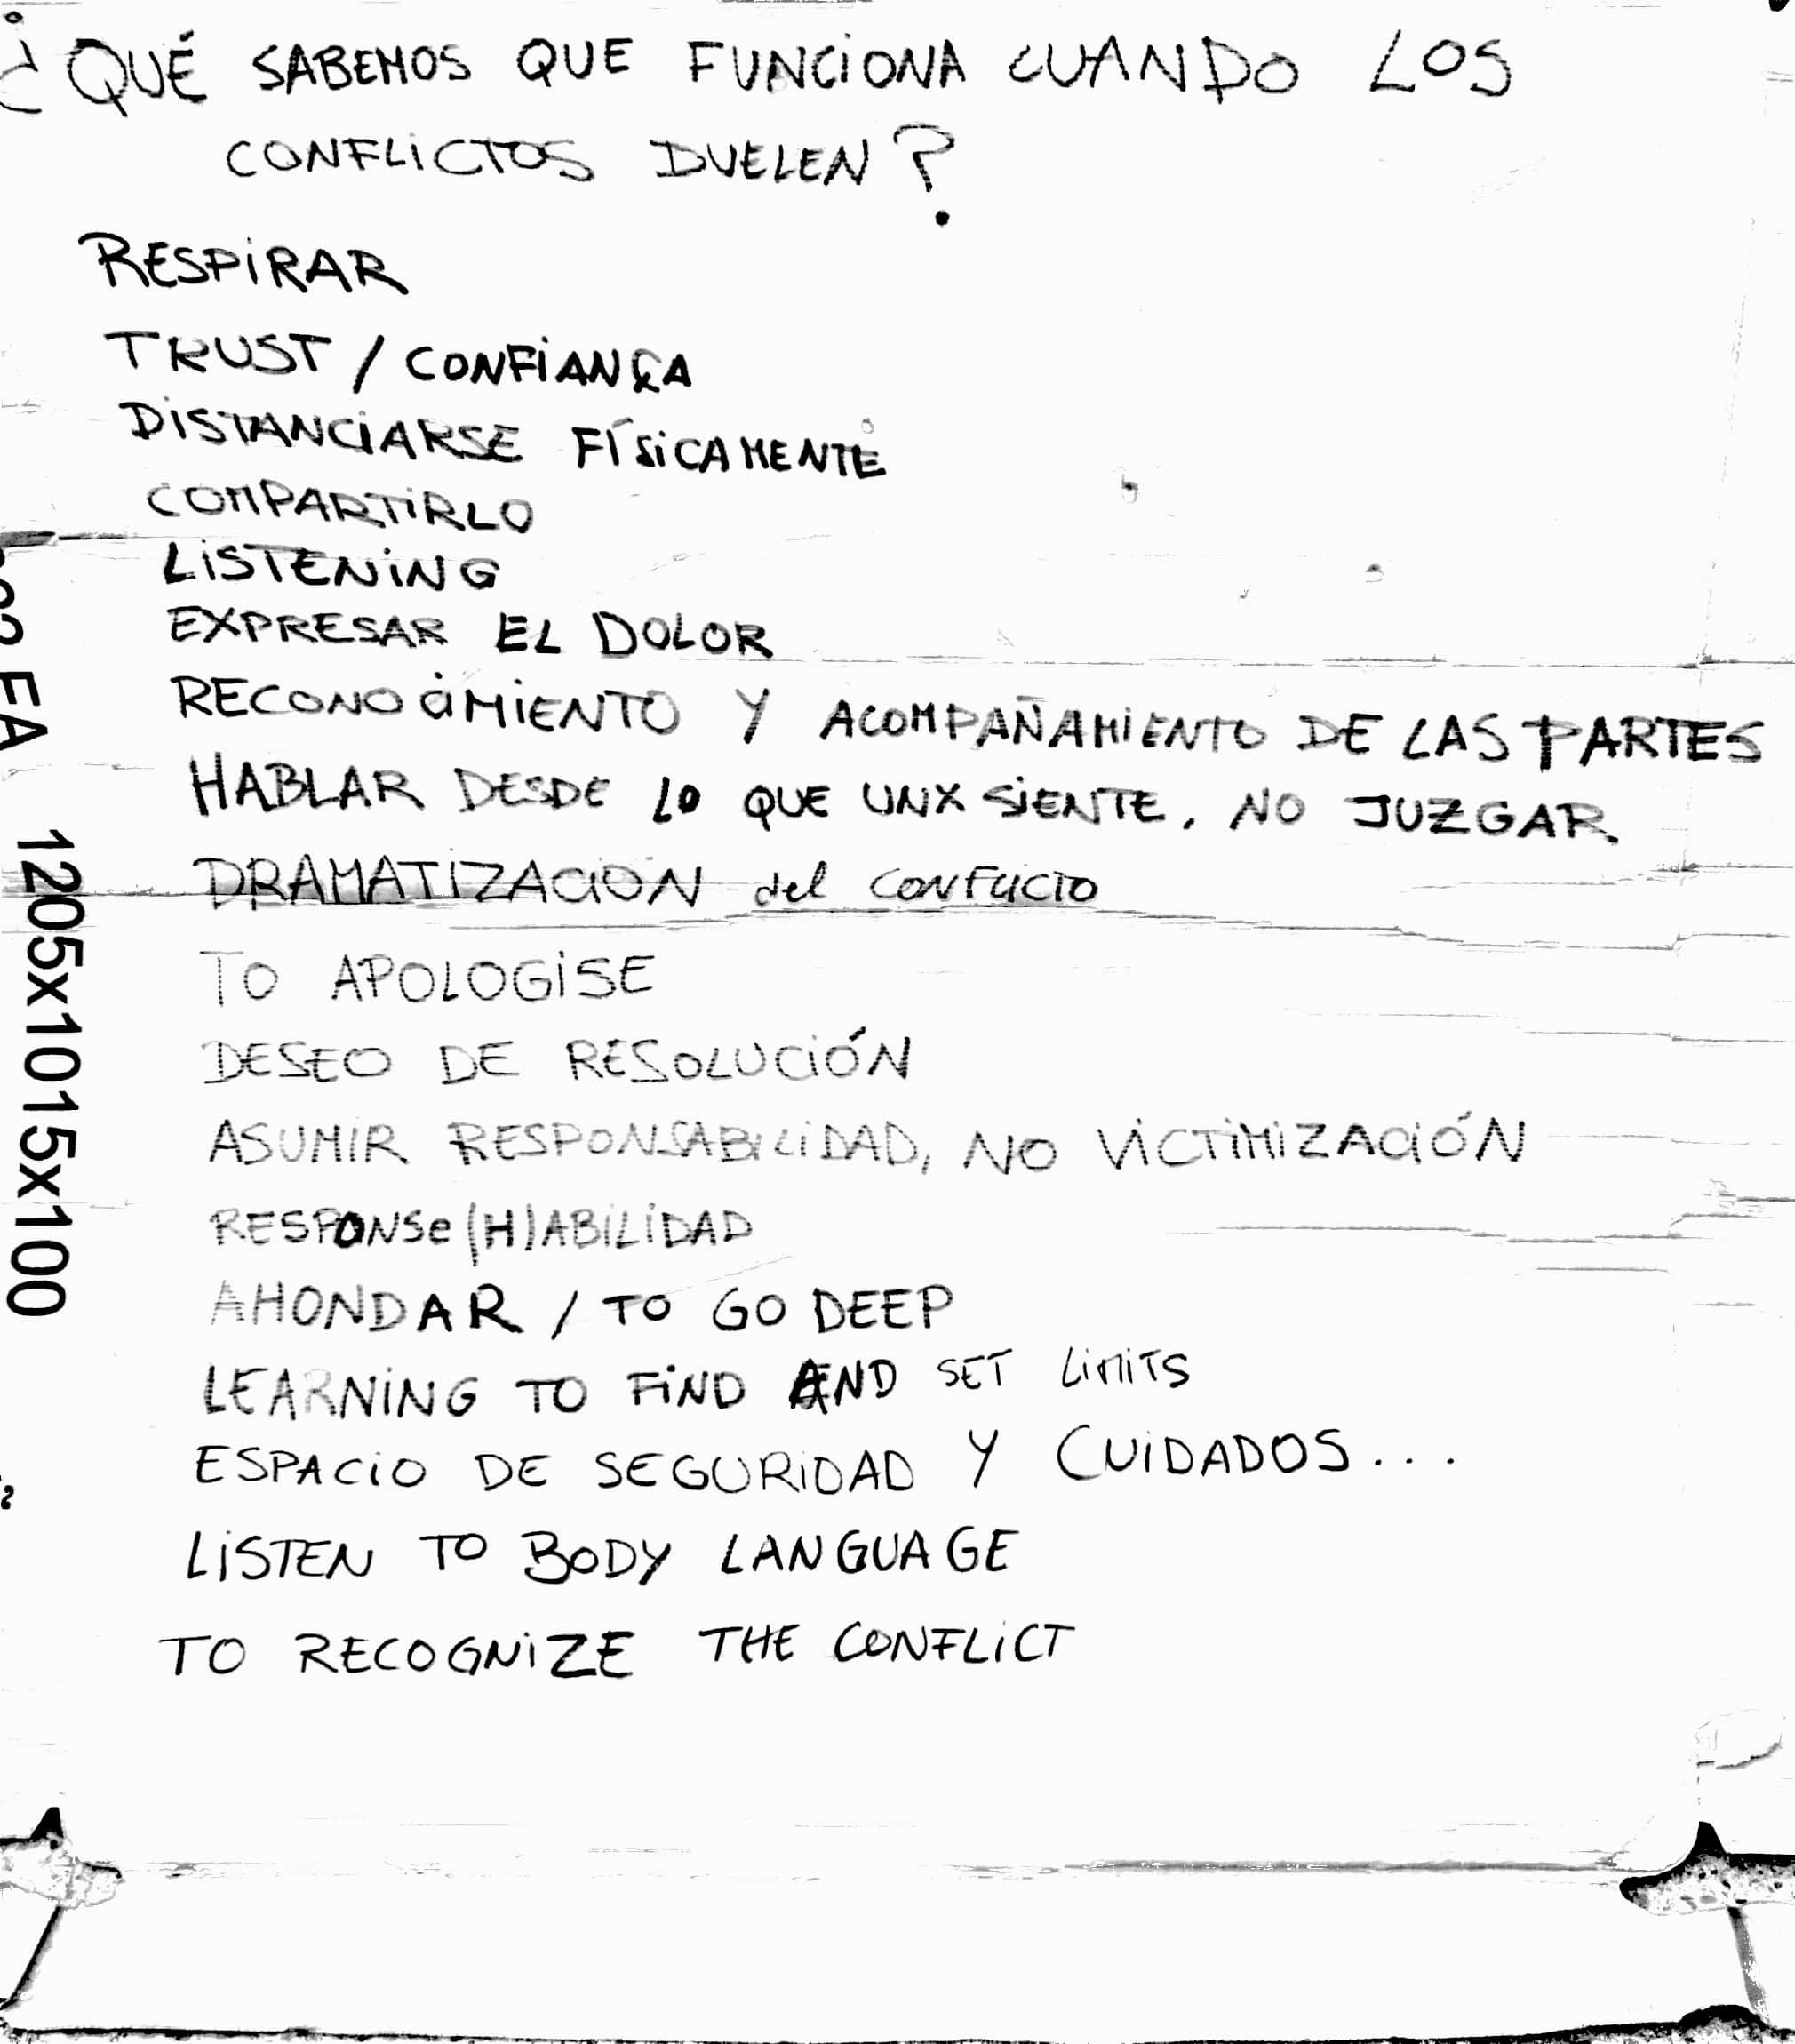 ¿QUÉ SABEMOS QUE FUNCIONA CUANDO LOS
CONFLICTOS DUELEN?
RESPIRAR
TRUST / CONFIANÇA
DISTANCIARSE FÍSICAMENTE
COMPARTIRLO
LISTENING
EXPRESAR EL DOLOR
RECONOCIMIENTO Y ACOMPAÑAMIENTO DE LAS PARTES
HABLAR DESDE LO QUE UNX SIENTE, NO JUZGAR
DRAMATIZACION del CONFLICTO
TO APOLOGISE
DESEO DE RESOLUCIÓN
ASUMIR RESPONSABILIDAD, NO VICTIMIZACIÓN
RESPONSe(H)ABILIDAD
AHONDAR / TO GO DEEP
LEARNING TO FIND AND SET LIMITS
ESPACIO DE SEGURIDAD Y CUIDADOS...
LISTEN TO BODY LANGUAGE
TO RECOGNIZE THE CONFLICT
EA 1205x1015x100